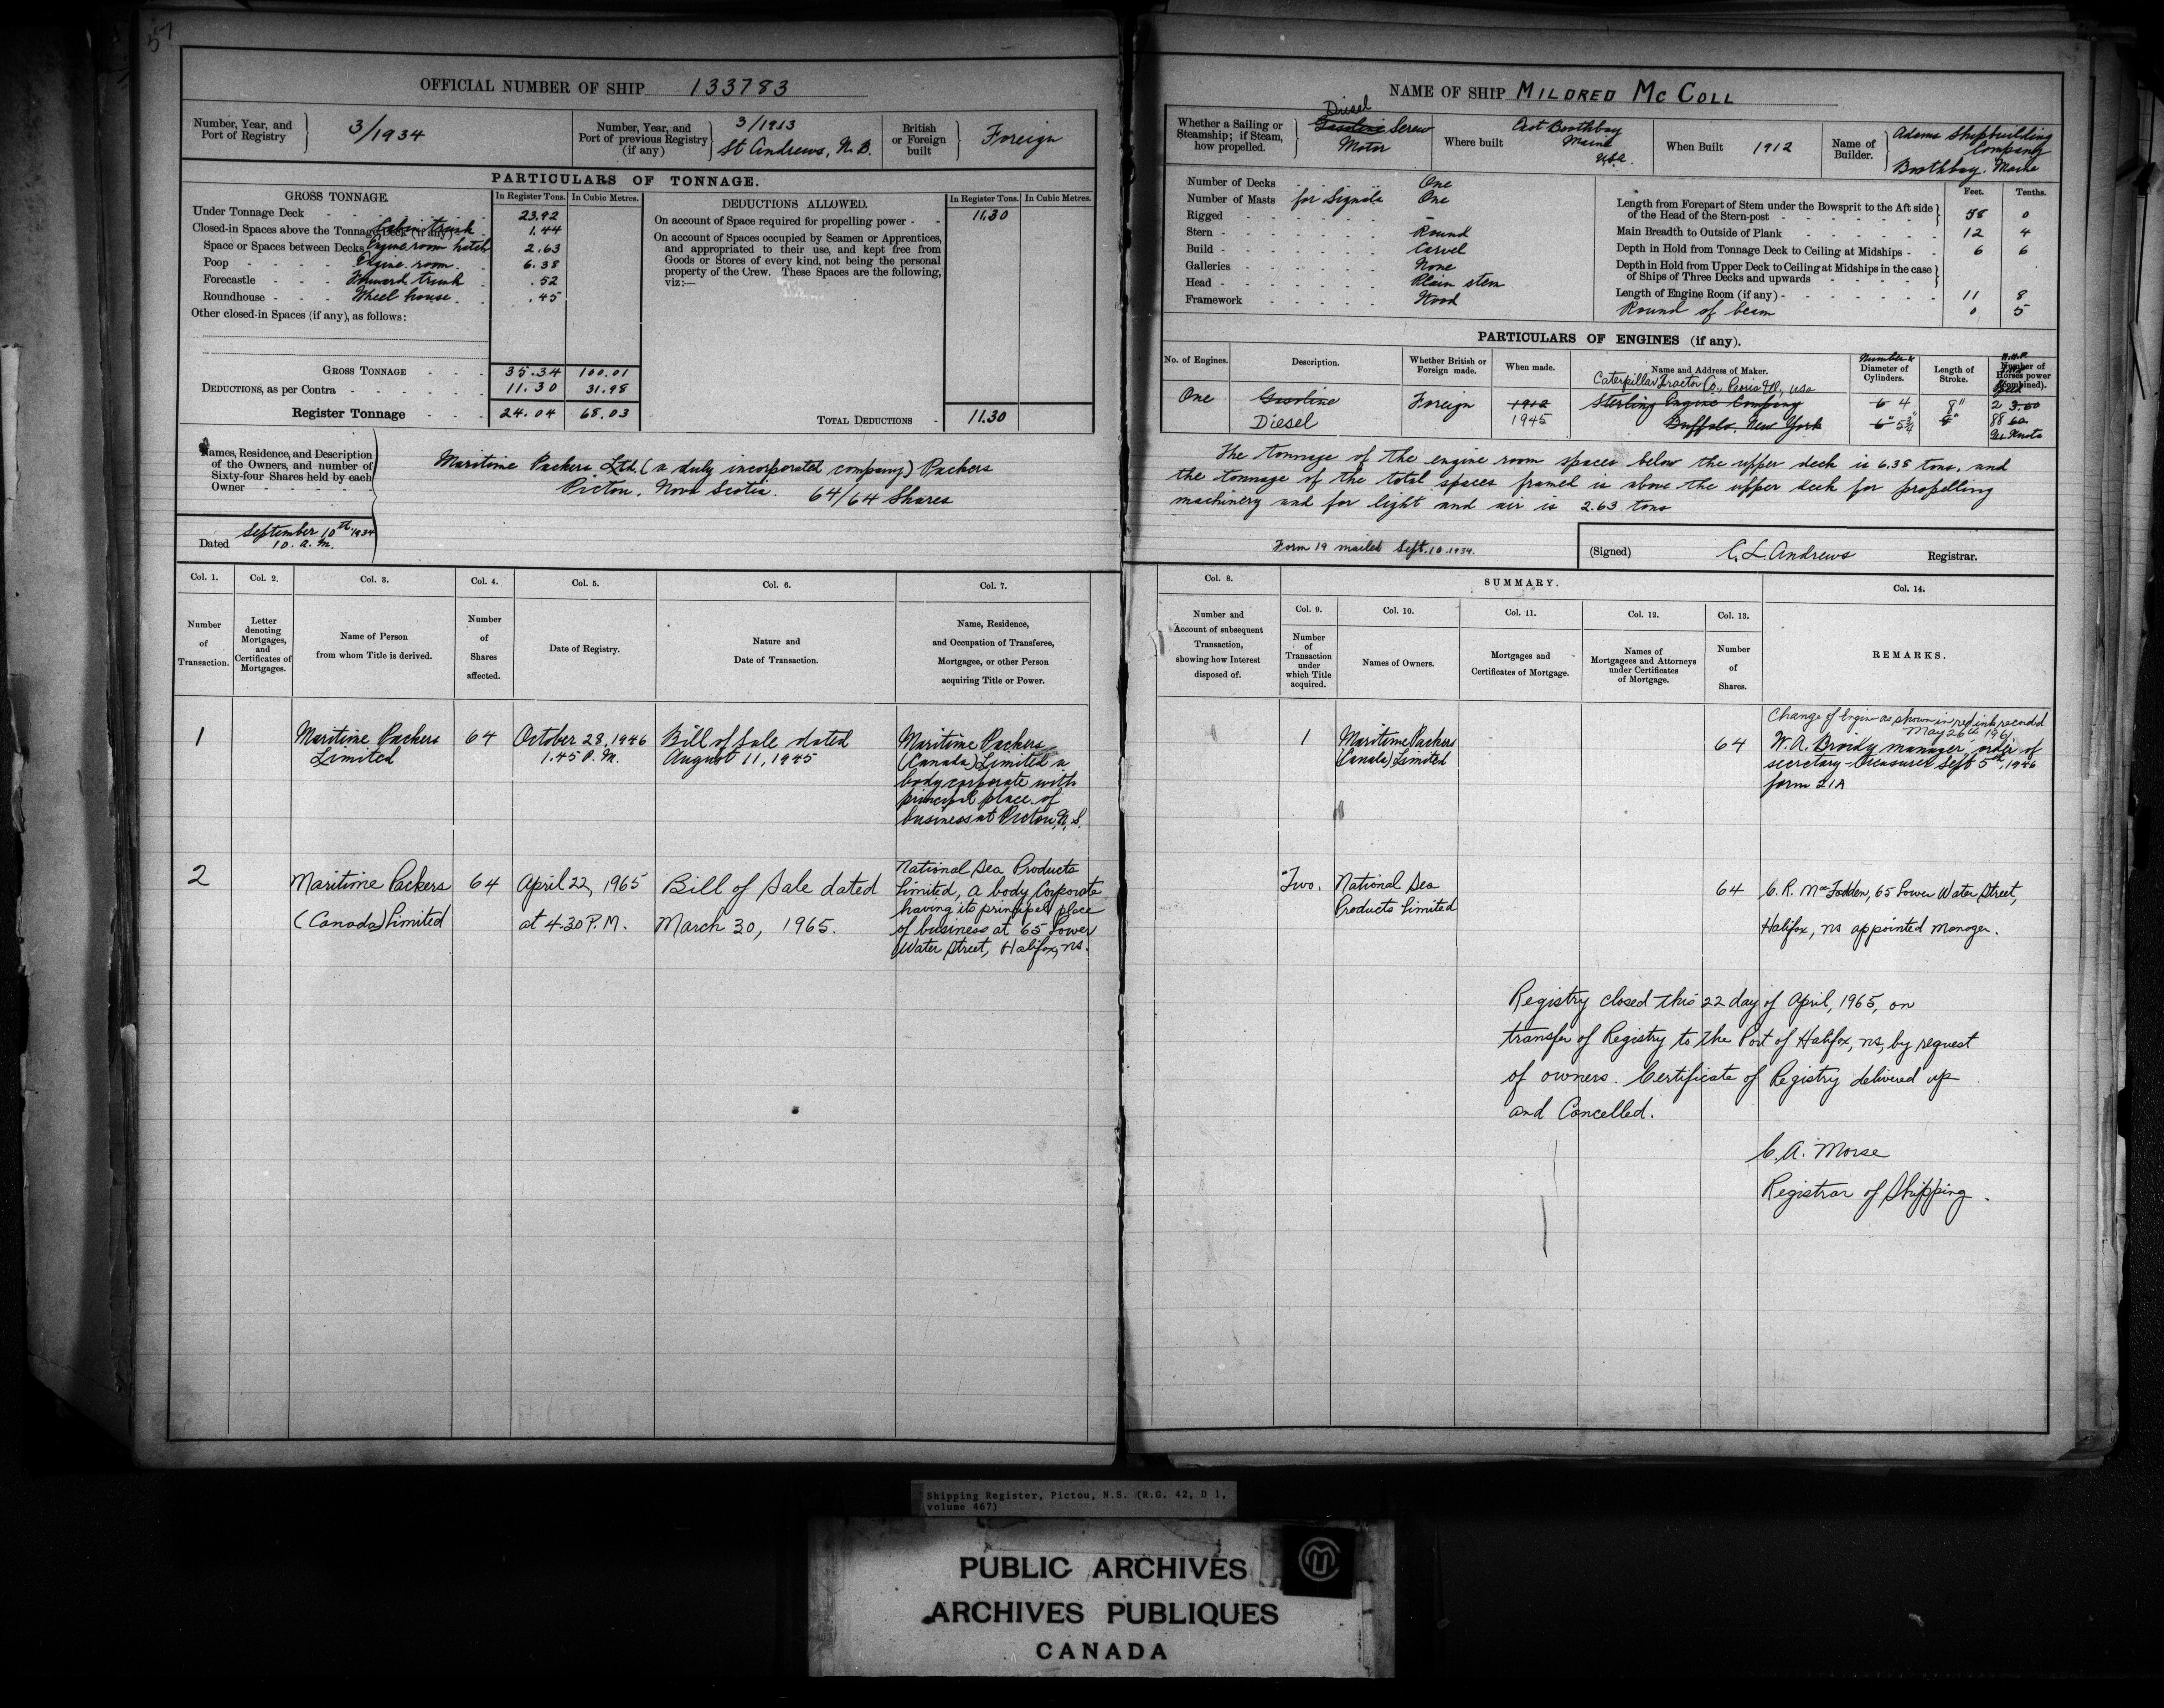 57
OFFICIAL NUMBER OF SHIP 133783
Number, Year, and
Port of Registry
3/1934
Number, Year, and
Port of previous Registry
(if any)
3/1913
St Andrews, N.B.
British
or Foreign
built
Foreign
PARTICULARS OF TONNAGE.
GROSS TONNAGE.
In Register Tons.
In Cubic Metres.
Under Tonnage Deck 23.92
Closed-in Spaces above the Tonnage Deck (if any) Cabin trunk 1.44
Space or Spaces between Decks Engine room hatch 2.63
Poop Engine room 6.38
Forecastle Forward trunk .52
Roundhouse Wheel house .45
Other closed-in Spaces (if any), as follows:
GROSS TONNAGE 35.34 100.01
DEDUCTIONS, as per Contra 11.30 31.98
Register Tonnage 24.04 68.03
DEDUCTIONS ALLOWED.
In Register Tons.
In Cubic Metres.
On account of Space required for propelling power 11.30
On account of Spaces occupied by Seamen or Apprentices,
and appropriated to their use, and kept free from
Goods or Stores of every kind, not being the personal
property of the Crew. These Spaces are the following,
viz:—
TOTAL DEDUCTIONS 11.30
Names, Residence, and Description
of the Owners, and number of
Sixty-four Shares held by each
Owner
Maritime Packers Ltd. (a duly incorporated company) Packers
Pictou, Nova Scotia. 64/64 Shares
Dated September 10th 1934
10. a.m.
Col. 1.
Number
of
Transaction.
Col. 2.
Letter
denoting
Mortgages,
and
Certificates of
Mortgages.
Col. 3.
Name of Person
from whom Title is derived.
Col. 4.
Number
of
Shares
affected.
Col. 5.
Date of Registry.
Col. 6.
Nature and
Date of Transaction.
Col. 7.
Name, Residence,
and Occupation of Transferee,
Mortgagee, or other Person
acquiring Title or Power.
1
Maritime Packers
Limited
64
October 28, 1946
1.45 P.M.
Bill of Sale dated
August 11, 1945
Maritime Packers
(Canada) Limited a
body corporate with
principal place of
business at Pictou, N.S.
2
Maritime Packers
(Canada) Limited
64
April 22, 1965
at 4.30 P.M.
Bill of Sale dated
March 30, 1965.
National Sea Products
Limited, a body Corporate
having its principal place
of business at 65 Lower
Water Street, Halifax, ns.
NAME OF SHIP MILDRED MC COLL
Whether a Sailing or
Steamship; if Steam,
how propelled.
Diesel
Gasoline Screw
Motor
Where built
East Boothbay
Maine
USA.
When Built 1912
Name of
Builder.
Adams Shipbuilding
Company
Boothbay. Maine
Number of Decks One
Number of Masts for Signals One
Rigged –
Stern Round
Build Carvel
Galleries None
Head Plain stem
Framework Wood
Feet. Tenths.
Length from Forepart of Stem under the Bowsprit to the Aft side
of the Head of the Stern-post 58 0
Main Breadth to Outside of Plank 12 4
Depth in Hold from Tonnage Deck to Ceiling at Midships 6 6
Depth in Hold from Upper Deck to Ceiling at Midships in the case
of Ships of Three Decks and upwards
Length of Engine Room (if any) 11 8
Round of beam 0 5
PARTICULARS OF ENGINES (if any).
No. of Engines.
Description.
Whether British or
Foreign made.
When made.
Name and Address of Maker.
Number &
Diameter of
Cylinders.
Length of
Stroke.
Number of
Horses power
(Combined).
One
Gasoline
Diesel
Foreign
1912
1945
Caterpillar Tractor Co., USA
Sterling Engine Company
Buffalo. New York
6 4
6" 5¾"
8"
2 3.60
88 60
The tonnage of the engine room spaces below the upper deck is 6.38 tons, and
the tonnage of the total spaces framed in above the upper deck for propelling
machinery and for light and air is 2.63 tons
Form 19 mailed Sept. 10. 1934.
(Signed) C. L. Andrews Registrar.
Col. 8.
Number and
Account of subsequent
Transaction,
showing how Interest
disposed of.
SUMMARY.
Col. 9.
Number
of
Transaction
under
which Title
acquired.
Col. 10.
Names of Owners.
Col. 11.
Mortgages and
Certificates of Mortgage.
Col. 12.
Names of
Mortgagees and Attorneys
under Certificates
of Mortgage.
Col. 13.
Number
of
Shares.
Col. 14.
REMARKS.
1
Maritime Packers
(Canada) Limited
64
Change of Engine as shown in red ink recorded
May 26th 1961
W. A. Broidy manager, order of
secretary-treasurer Sept 5th, 1946
form 21A
Two.
National Sea
Products Limited
64
C. R. MacFadden, 65 Lower Water Street,
Halifax, ns appointed Manager.
Registry closed this 22 day of April, 1965, on
transfer of Registry to the Port of Halifax, ns, by request
of owners. Certificate of Registry delivered up
and Cancelled.
C. A. Morse
Registrar of Shipping.
Shipping Register, Pictou, N.S. (R.G. 42, D 1,
volume 467)
PUBLIC ARCHIVES
ARCHIVES PUBLIQUES
CANADA